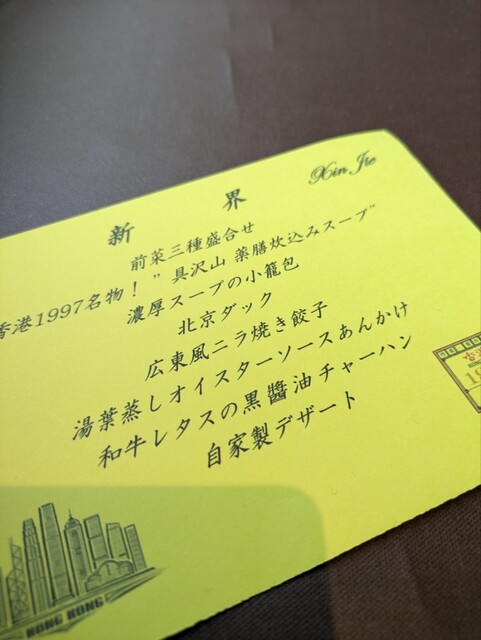 Xin Jie
新 界
前菜三種盛合せ
香港1997名物！"具沢山 薬膳炊込みスープ"
濃厚スープの小籠包
北京ダック
広東風ニラ焼き餃子
湯葉蒸しオイスターソースあんかけ
和牛レタスの黒醤油チャーハン
自家製デザート
HONG KONG